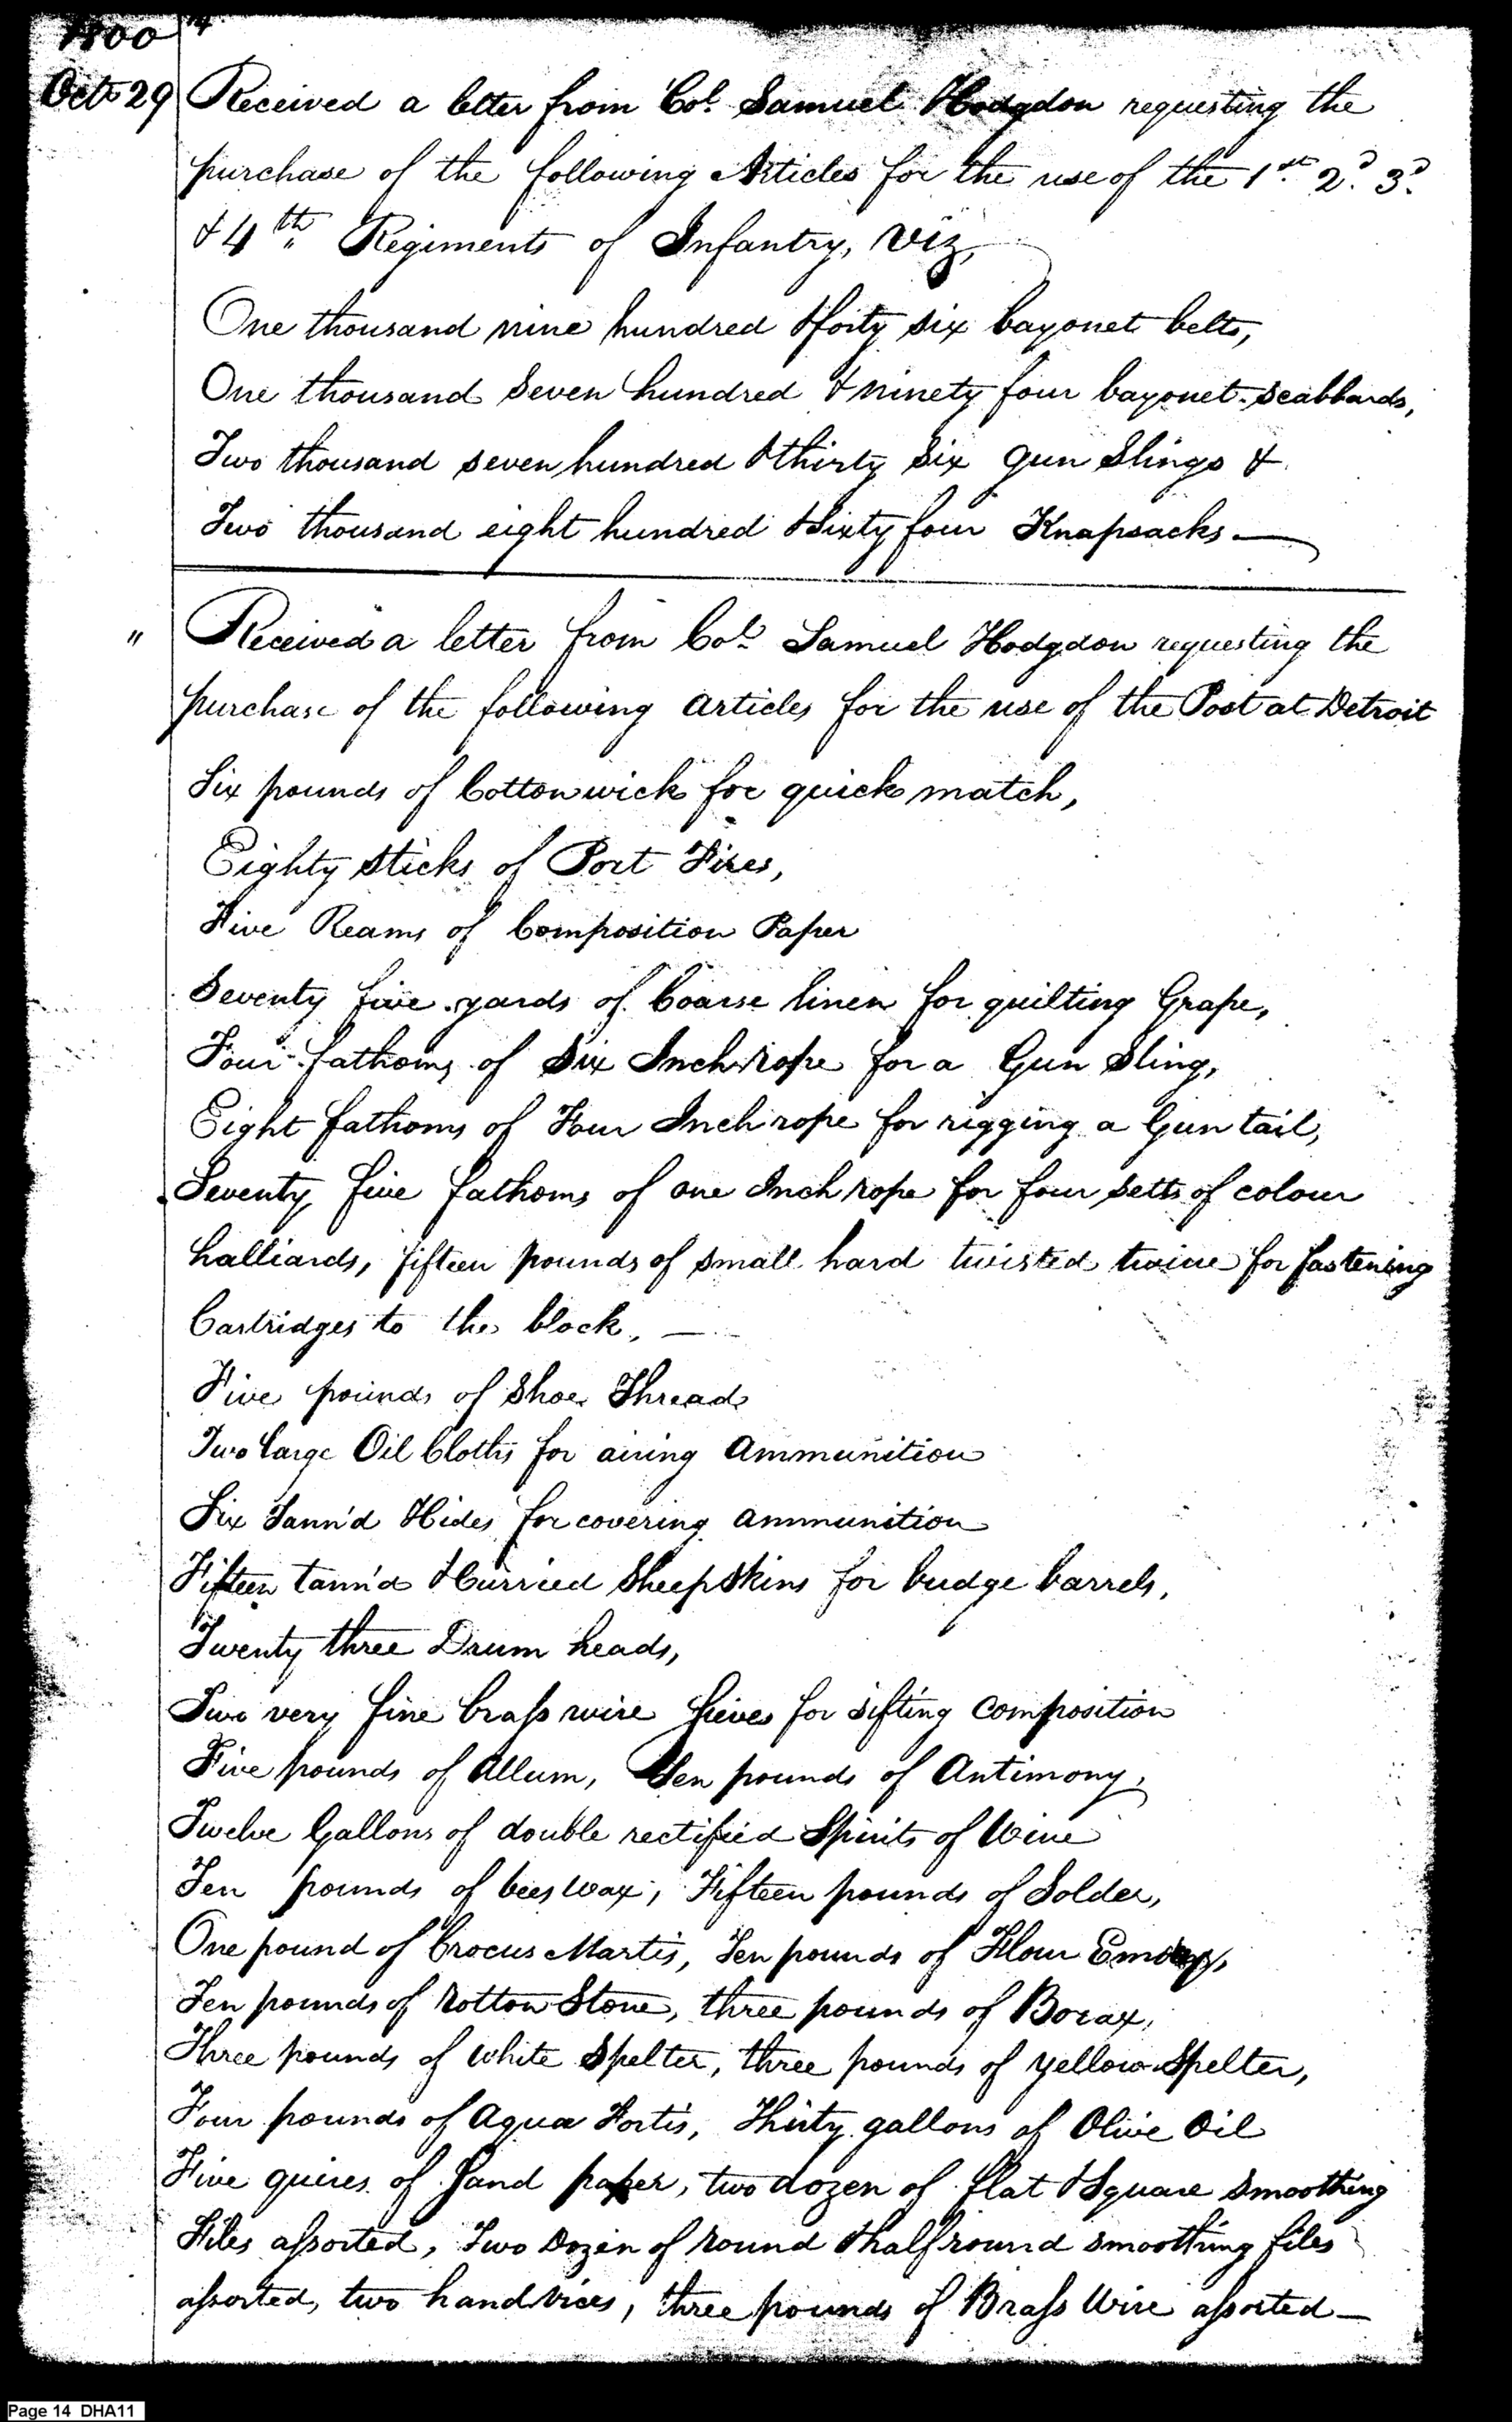 1800
14
Octr 29 Received a letter from Col. Samuel Hodgdon requesting the
purchase of the following Articles for the use of the 1st 2d 3d
& 4th Regiments of Infantry, viz,
One thousand nine hundred & forty six bayonet belts,
One thousand Seven hundred & ninety four bayonet scabbards,
Two thousand seven hundred & thirty six gun Slings &
Two thousand eight hundred & sixty four Knapsacks —
" Received a letter from Col. Samuel Hodgdon requesting the
purchase of the following articles for the use of the Post at Detroit
Six pounds of Cotton wick for quick match,
Eighty sticks of Port Fires,
Five Reams of Composition Paper
Seventy five yards of Coarse linen for quilting Grape,
Four fathoms of six Inch rope for a Gun Sling,
Eight fathoms of Four Inch rope for rigging a Gun tail,
Seventy five fathoms of one Inch rope for four setts of colour
halliards, fifteen pounds of small hard twisted twine for fastening
Cartridges to the block, —
Five pounds of Shoe Thread
Two large Oil Cloths for airing ammunition
Six Tann'd Hides for covering ammunition
Fifteen tann'd & Curried Sheep Skins for budge barrels,
Twenty three Drum heads,
Two very fine brass wire Sieves for sifting composition
Five pounds of Allum, Ten pounds of Antimony,
Twelve Gallons of double rectified Spirits of Wine
Ten pounds of bees wax, Fifteen pounds of Solder,
One pound of Crocus Martis, Ten pounds of Flour Emory,
Ten pounds of rotton Stone, three pounds of Borax,
Three pounds of White Spelter, three pounds of yellow Spelter,
Four pounds of Aqua Fortis, Thirty gallons of Olive Oil
Five quires of Sand paper, two dozen of flat & Square smoothing
Files assorted, Two Dozen of round & half round smoothing files
assorted, two hand vices, three pounds of Brass Wire assorted —
Page 14 DHA11